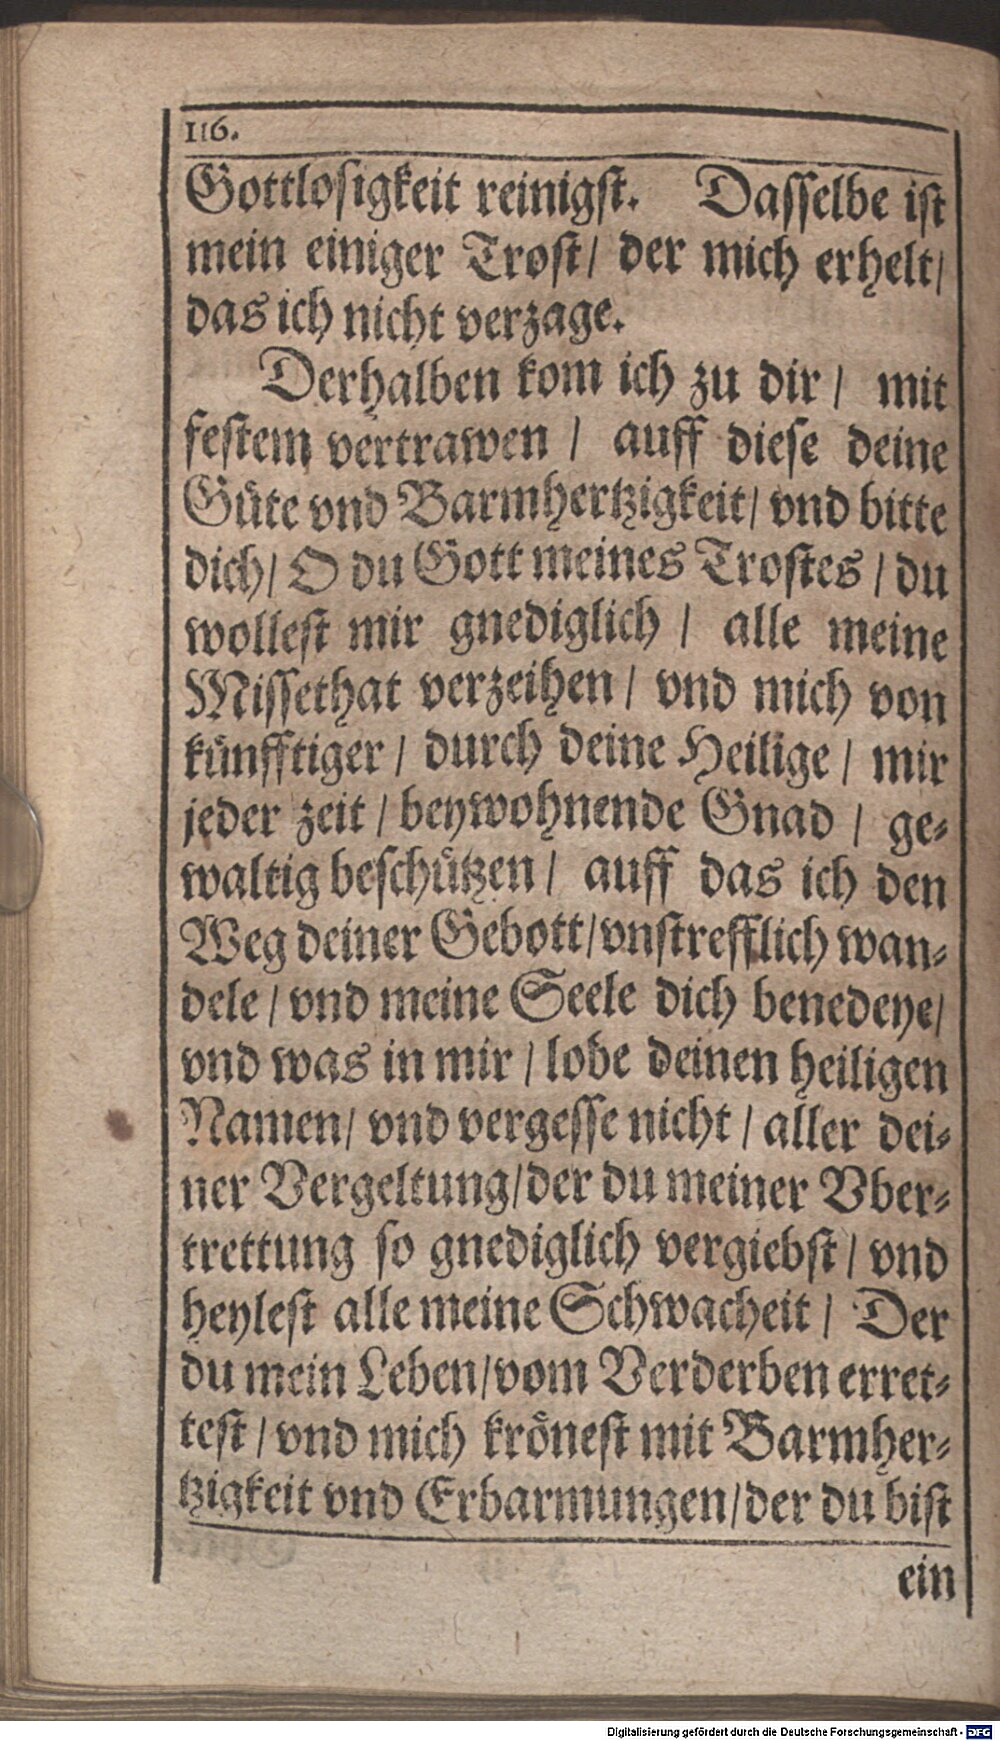 116.
Gottlosigkeit reinigst. Dasselbe ist
mein einiger Trost/ der mich erhelt/
das ich nicht verzage.
Derhalben kom ich zu dir/ mit
festem vertrawen / auff diese deine
Güte vnd Barmhertzigkeit/ vnd bitte
dich/ O du Gott meines Trostes / du
wollest mir gnediglich / alle meine
Missethat verzeihen / vnd mich von
künfftiger / durch deine Heilige / mir
jeder zeit / beywohnende Gnad / ge-
waltig beschützen / auff das ich den
Weg deiner Gebott/vnstrefflich wan-
dele / vnd meine Seele dich benedeye/
vnd was in mir / lobe deinen heiligen
Namen/ vnd vergesse nicht / aller dei-
ner Vergeltung/der du meiner Vber-
trettung so gnediglich vergiebst / vnd
heylest alle meine Schwacheit / Der
du mein Leben/vom Verderben erret-
test / vnd mich krönest mit Barmher-
tzigkeit vnd Erbarmungen/der du bist
ein
Digitalisierung gefördert durch die Deutsche Forschungsgemeinschaft - DFG